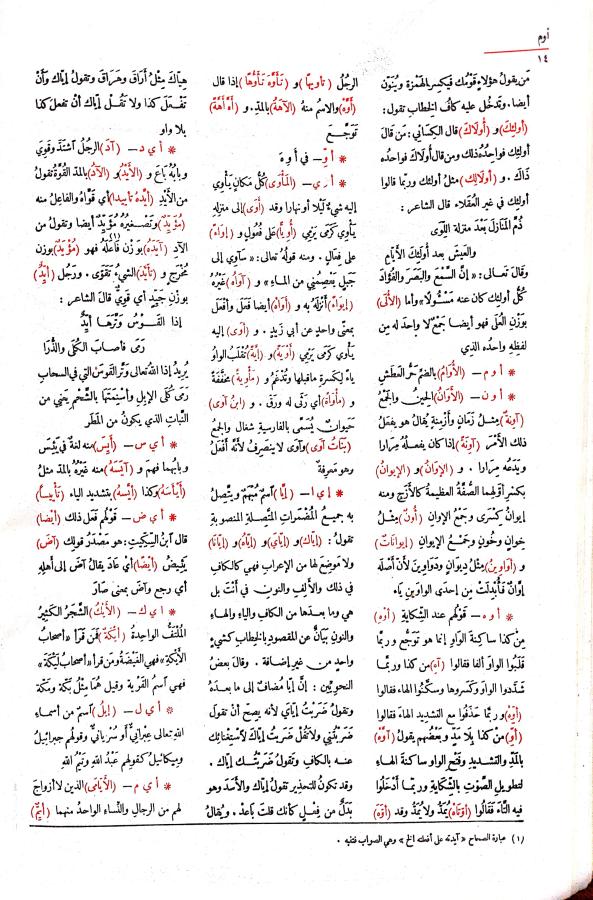 أوم
١٤
مَن يقولُ هؤلاءٍ قَوْمُك فيكسِر الهمزة ويُنَوِّن
أيضا . وتدخل عليه كافُ الخطاب تقول :
(أولئِك) و (أُولَاكَ) قال الكسائى: مَن قالَ
أولئِك فواحدُه ذلك ومن قال أُولَاك فواحدُه
ذَاك . و (أُولَالِك) مثلُ أولئك وربما قالوا
أولئِك فى غير العُقَلاء قال الشاعر :
ذُمَّ المَنَازلَ بَعْدَ منزلة اللِّوَى
والعيشَ بعد أُولَئِكَ الأيّامِ
وقال تعالى: «إنَّ السَّمْعَ والبَصَرَ والفُؤَادَ
كُلُّ أولئك كان عنه مَسْئُولًا» وأما (الأُلَى)
بوزْنِ العُلَى فهو أيضا جَمْعٌ لا واحدَ له مِن
لفظِهِ واحده الذى
* أ و م – (الأُوَامُ) بالضم حَرُّ العَطَش
* أ و ن – (الأَوَانُ) الحِينُ والجَمْعُ
(آوِنَةٌ) مثلُ زَمَانٍ وأَزْمِنَةٍ يُقالُ هو يفعل
ذلك الأَمْرَ (آوِنَةً) إذا كان يفعلهُ مِرارا
ويَدَعُه مِرارا . و (الإوَانُ) و (الإيوانُ)
بكسر أوّلهما الصُّفَّةُ العظيمةُ كالأَزَجِ ومنه
إيوانُ كِسْرَى وجمعُ الإوانِ (أُونٌ) مثلُ
خِوانٍ وخُونٍ وجمْعُ الإيوانِ (إيواناتٌ)
و (أَوَاوينُ) مثلُ دِيوَانٍ ودَوَاوِينَ لأنّ أصلَه
إوَّانٌ فأُبْدِلَتْ مِن إحدى الواوينِ ياء
* أ و ه – قولُهم عند الشكاية (أَوْهِ)
مِن كذا ساكنةَ الواوِ إنما هو تَوَجُّع وربما
قَلبُوا الواوَ ألفا فقالوا (آهِ) من كذا وربما
شدّدوا الواوَ وكَسَروها وسكّنُوا الهاءَ فقالوا
(أَوِّهْ) وربما حذَفُوا مع التشديد الهاءَ فقالوا
(أَوِّ) من كذا بلا مَدٍّ وبعضُهم يقول (آوَّهْ)
بالمَدِّ والتشديدِ وفتحِ الواوِ ساكنةَ الهاء
لتطويلِ الصَّوْتِ بالشكايةِ وربما أَدْخَلُوا
فيه التاءَ فقالُوا (أَوَّتَاهُ) يُمَدُّ ولا يُمَدُّ وقد (أَوَّه)
الرجُلُ (تأويهًا) و (تَأَوَّهَ تَأَوُّهًا) إذا قال
(أَوَّهْ) والاسم منه (الآهَةُ) بالمدّ . و (أَهَّ أَهَّةً)
تَوَجَّعَ
* أَوِّ – فى أ و ه
* أ و ى – (المَأْوَى) كُلُّ مَكانٍ يَأوى
إليه شىءٌ لَيلا أو نهارا وقد (أَوَى) إلى منزِلِهِ
يأوِى كرَمَى يَرمِى (أُوِيًّا) على فُعُولٍ و (إوَاءً)
على فِعَالٍ . ومنه قولُه تعالى: «سآوِى إلى
جبلٍ يَعْصِمُنى مِن الماء» و (آواهُ) غيرُهُ
(إيوَاءً) أَنْزَلهُ به و (أَوَاهُ) أيضا فعَلَ وأفعلَ
بمعنًى واحد عن أبى زيد . و (أَوَى) إليه
يأوِى كرَمَى يَرمِى (أَوْيَةً) و (إيَّةً) تُقلبُ الواوُ
ياءً لكسرةِ ما قبلها وتُدْغَمُ و (مَأْوِيَةً) مخفَّفةً
و (مَأْوَاةً) أى رَثَى له ورَقَّ . و (ابنُ آوَى)
حَيَوانٌ يُسَمَّى بالفارسيةِ شغال والجمعُ
(بَنَاتُ آوَى) وآوى لا ينصرفُ لأنه أَفْعَلُ
وهو معرِفة
* إ ى ا – (إيَّا) اسمٌ مُبْهَمٌ ويتّصِلُ
به جميع المُضْمَرَاتِ المتّصِلة المنصوبةِ
تقولُ : (إيّاكَ) و (إيّاىَ) و (إيّاهُ) و (إيّانَا)
ولا مَوضِعَ لها مِن الإعراب فهى كالكاف
فى ذلك والألِفِ والنون فى أنْتَ بل
هى وما بعدها من الكافِ والياءِ والهاءِ
والنونِ بَيَانٌ عن المقصودِ بالخطاب كشىءٍ
واحدٍ من غير إضافة . وقال بعضُ
النحويين : إنّ إيَّا مُضافٌ إلى ما بعدَهُ
وتقول ضَرَبْتُ إيّاىَ لأنه يصِحُّ أنْ تقولَ
ضَرَبْتُنِى ولا تَقُل ضَرَبْتُ إيّاكَ لاستِغْنائِكَ
عنه بالكافِ وتقول ضَرَبْتُكَ إيّاكَ .
وقد تكونُ للتّحذيرِ تقولُ إيَّاكَ والأسَدَ وهو
بَدَلٌ من فِعْلٍ كأنّكَ قلتَ باعِدْ . ويُقالُ
هِيَّاكَ مِثْلُ أَراقَ وهَرَاقَ وتقولُ إيّاك وأنْ
تفعَلَ كذا ولا تَقُلْ إيّاكَ أنْ تفعلَ كذا
بلا واو
* أ ى د – (آدَ) الرجُلُ اشتَدَّ وقَوِىَ
وبابُه باع و (الأَيْدُ) و (الآدُ) بالمدّ القُوَّةُ تقولُ
من الأَيْدِ (أَيَّدَهُ تأييدا) أى قَوَّاهُ والفاعِلُ منه
(مُؤَيِّدٌ) وتصغيرُه مُؤَيِّدٌ أيضا وتقول من
الآدِ (آيَدَهُ) بوزْنِ فَاعَلَهُ فهو (مُؤْيَدٌ) بوزن
مُخْرَجٍ و (تَأَيَّدَ) الشىءُ تَقَوَّى . ورَجُلٌ (أيِّدٌ)
بوزْنِ جَيِّدٍ أى قَوِىٌّ قال الشاعر :
إذا القَوْسُ وَتَّرَهَا أَيِّدٌ
رَمَى فأصابَ الكُلَى والذُّرَا
يُريدُ إذا اللهُ تعالى وتَّر القوسَ التى فى السحابِ
رَمَى كُلَى الإبِلِ وأَسْنِمَتَها بالشَّحْمِ يعنى من
النباتِ الذى يكونُ مِن المطرِ
* أ ى س – (أَيِسَ) منه لغةٌ فى يَئِسَ
وبابُهما فهِم و (آيَسَهُ) منه غيرُهُ بالمدّ مثلُ
(أَيْأَسَهُ) وكذا (أَيَّسَهُ) بتشديد الياءِ (تأييسا)
* أ ى ض – قولُهم فَعلَ ذلك (أيضا)
قال ابنُ السِّكِّيت: هو مَصْدَرُ قولك (آضَ)
يَئِيضُ (أيْضًا) أى عادَ يقالُ آضَ إلى أهلِهِ
أى رجع وآض بمعنى صَارَ
* أ ى ك – (الأَيْكُ) الشجَرُ الكثيرُ
المُلْتَفُّ الواحدةُ (أَيْكَةٌ) فمَن قرأ «أصحابُ
الأَيْكةِ» فهى الغَيْضةُ ومَن قرأ «أصحابُ لَيْكةَ»
فهى اسمُ القَرْيةِ وقيل هُما مثْلُ بَكَّةَ ومَكَّةَ
* أ ى ل – (إيل) اسمٌ من أسماءِ
اللهِ تعالى عِبْرانىٌّ أو سُرْيانىٌّ وقولهم جبرائيلُ
وميكائيلُ كقولهم عَبْدُ اللهِ وتَيْمُ اللهِ
* أ ى م – (الأَيَامَى) الذين لا أزواجَ
لهم من الرجالِ والنساءِ الواحدُ منهما (أيِّمٌ)
(١) عبارة الصحاح «آيدته على أفعلت الخ» وهى الصواب فتنبه .